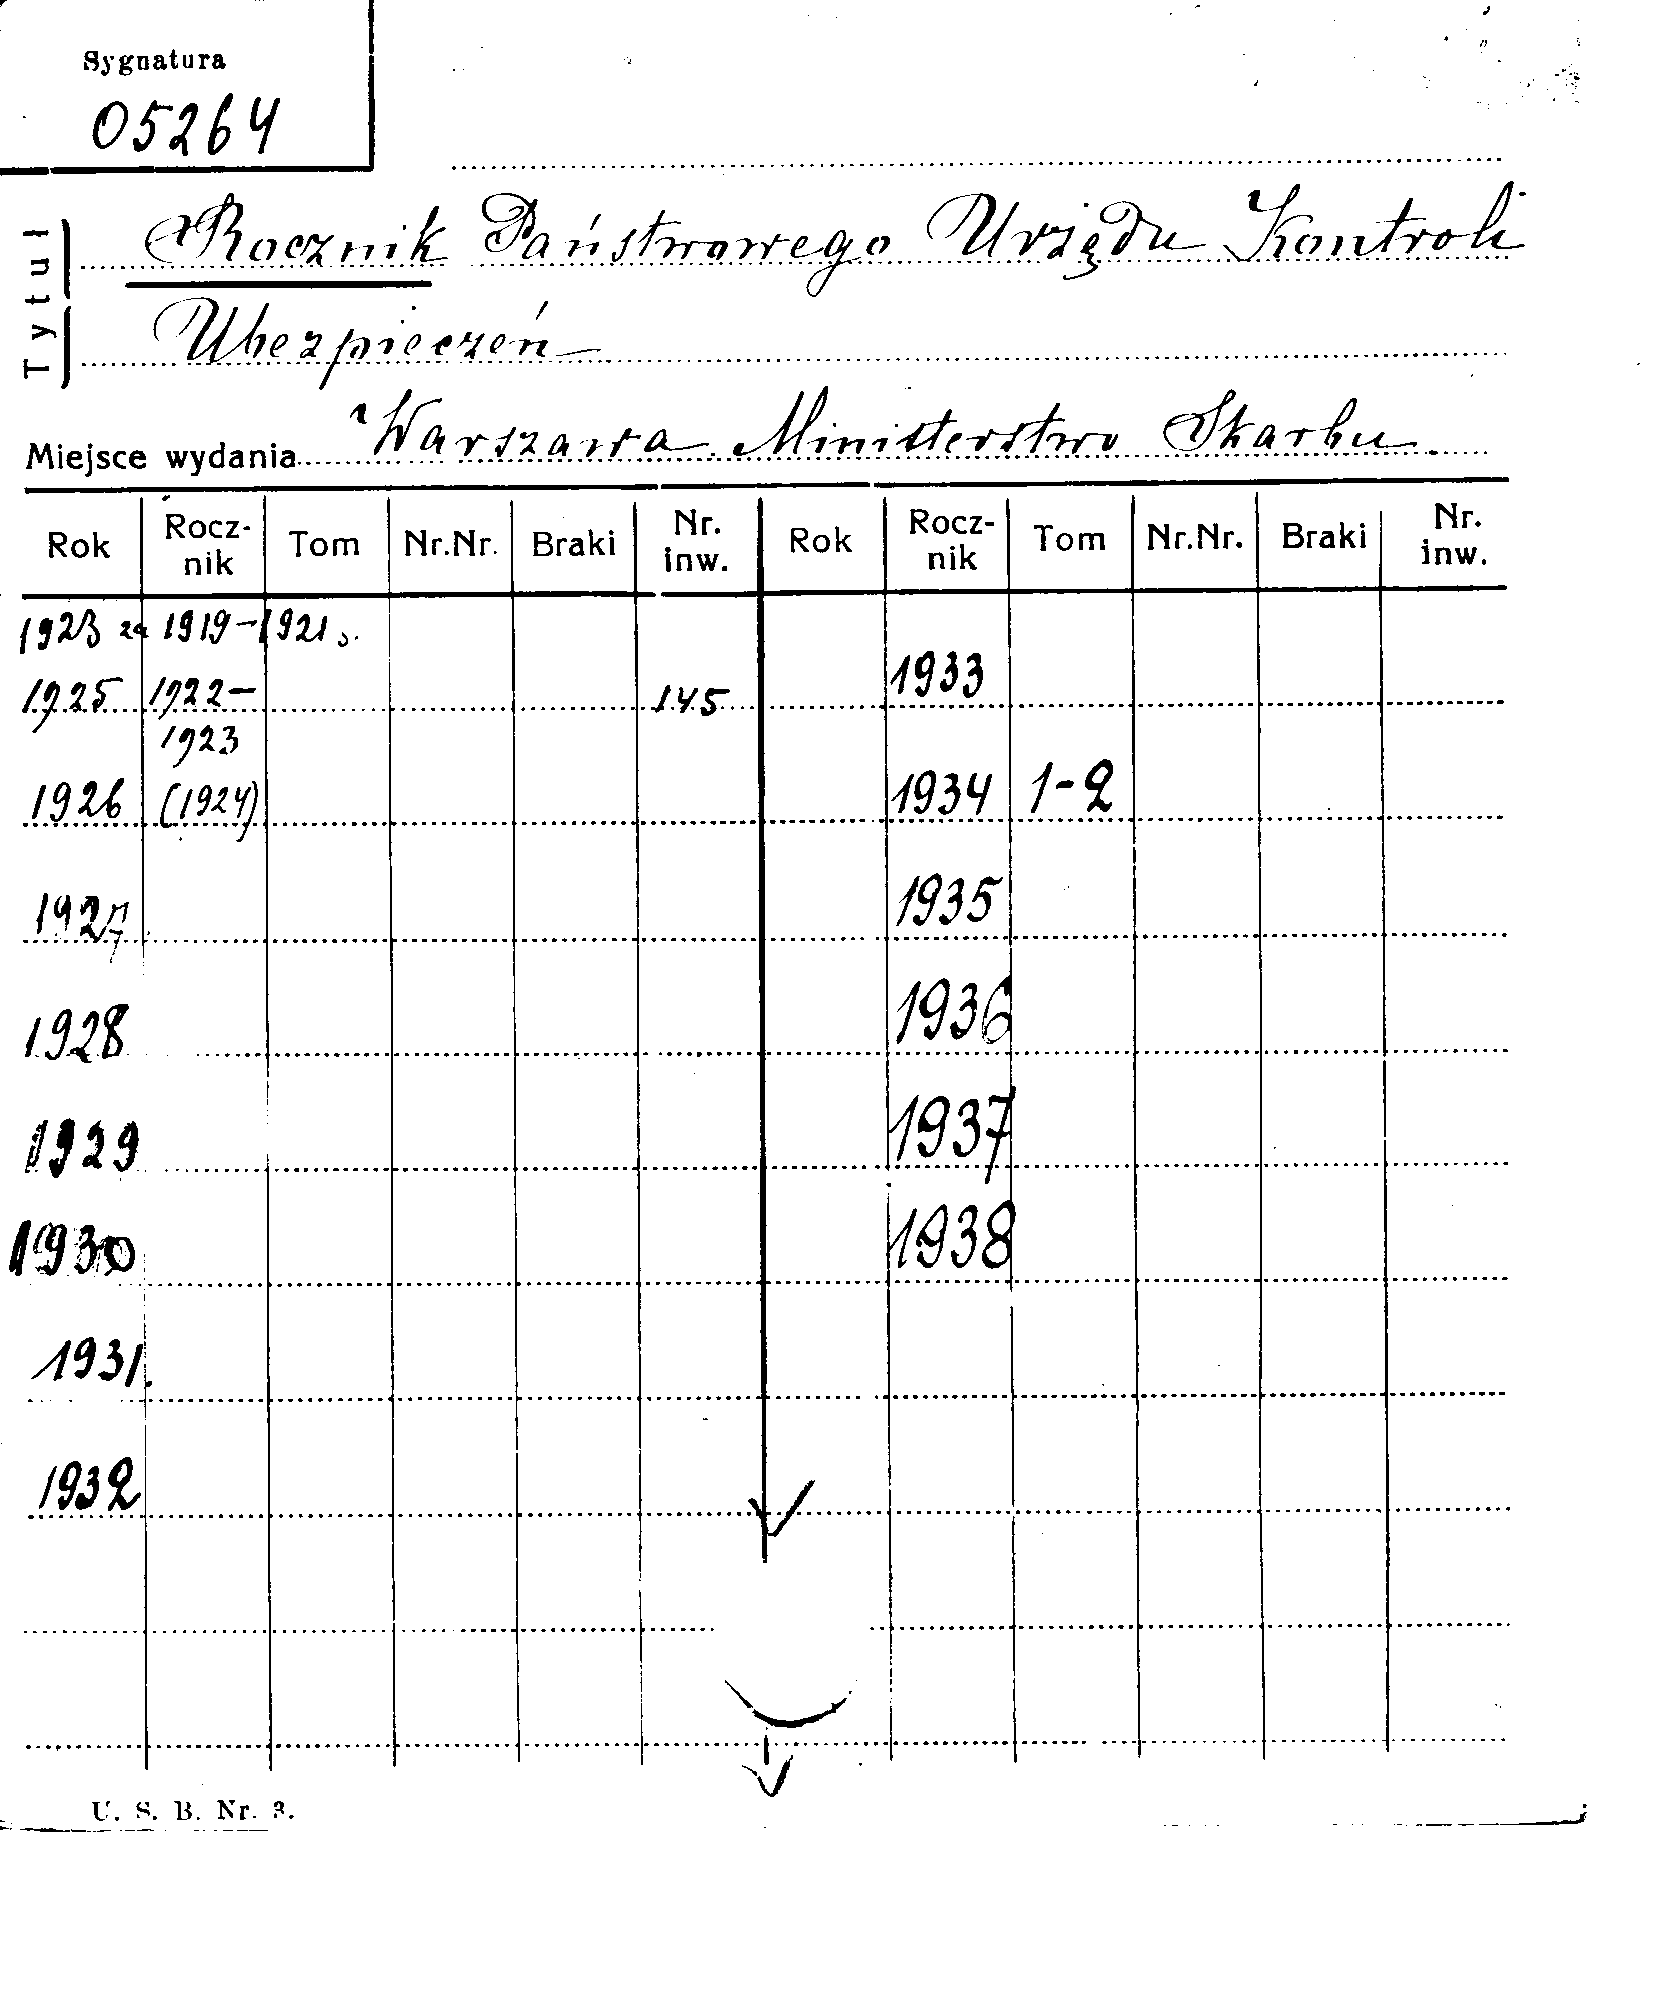 Sygnatura
05264
Tytuł
Rocznik Państwowego Urzędu Kontroli
Ubezpieczeń
Miejsce wydania Warszawa Ministerstwo Skarbu.
Rok Rocz-nik Tom Nr.Nr. Braki Nr. inw. Rok Rocz-nik Tom Nr.Nr. Braki Nr. inw.
1923 za 1919-1921
1933
1925 1922- 145
1923
1926 (1924) 1934 1-2
1927 1935
1928 1936
1929 1937
1930 1938
1931.
1932
U. S. B. Nr. 3.